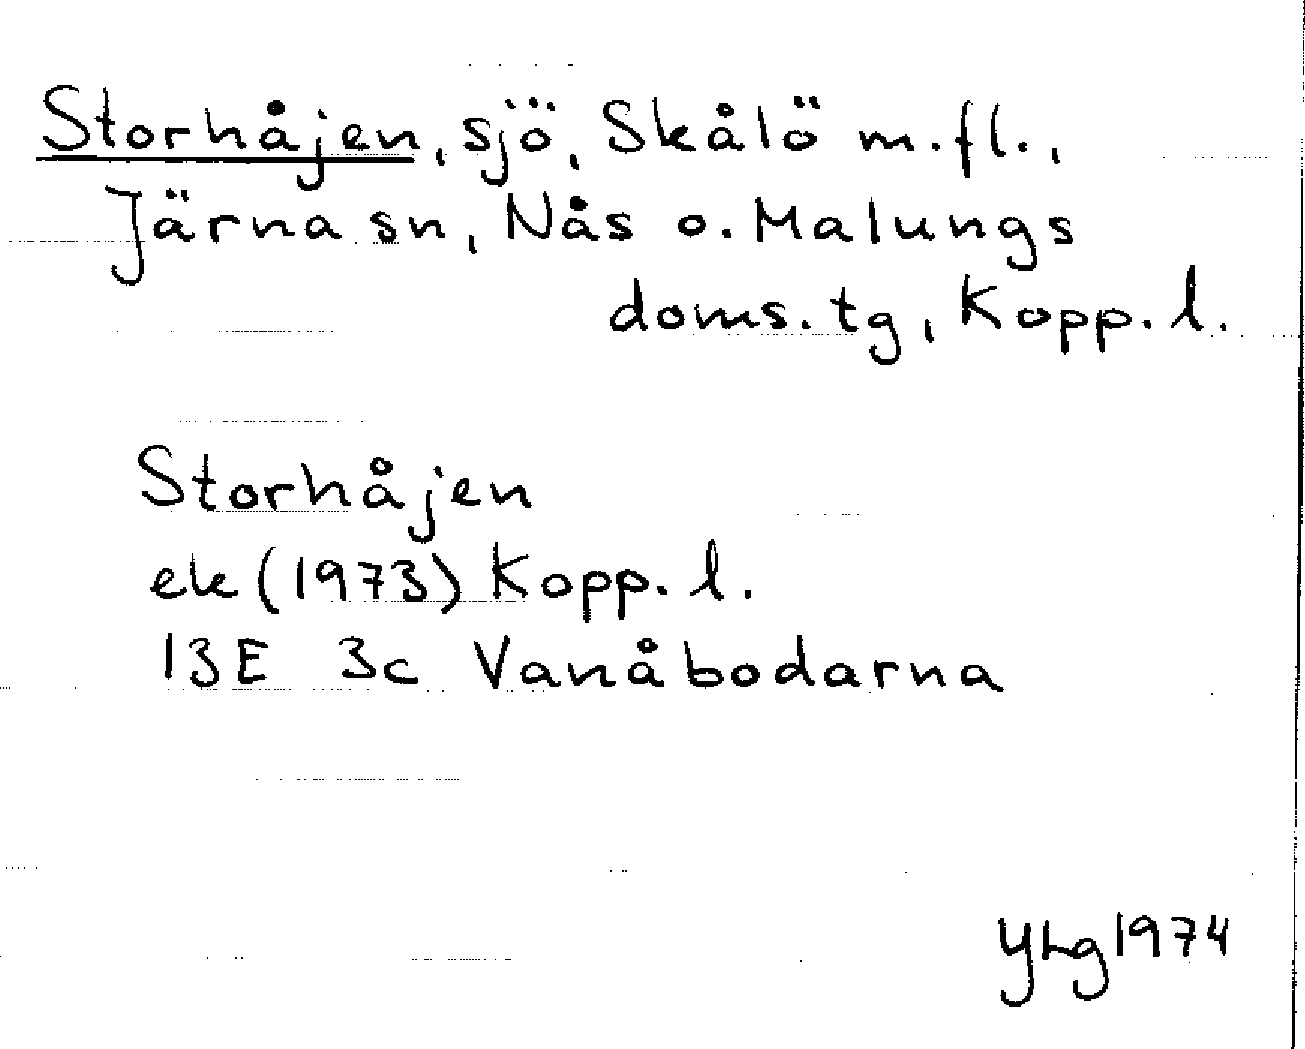 Storhåjen, sjö, Skålö m.fl.,
Järna sn, Nås o. Malungs
doms.tg, Kopp. l.
Storhåjen
ek (1973) Kopp. l.
13E 3c Vanåbodarna
YLg 1974